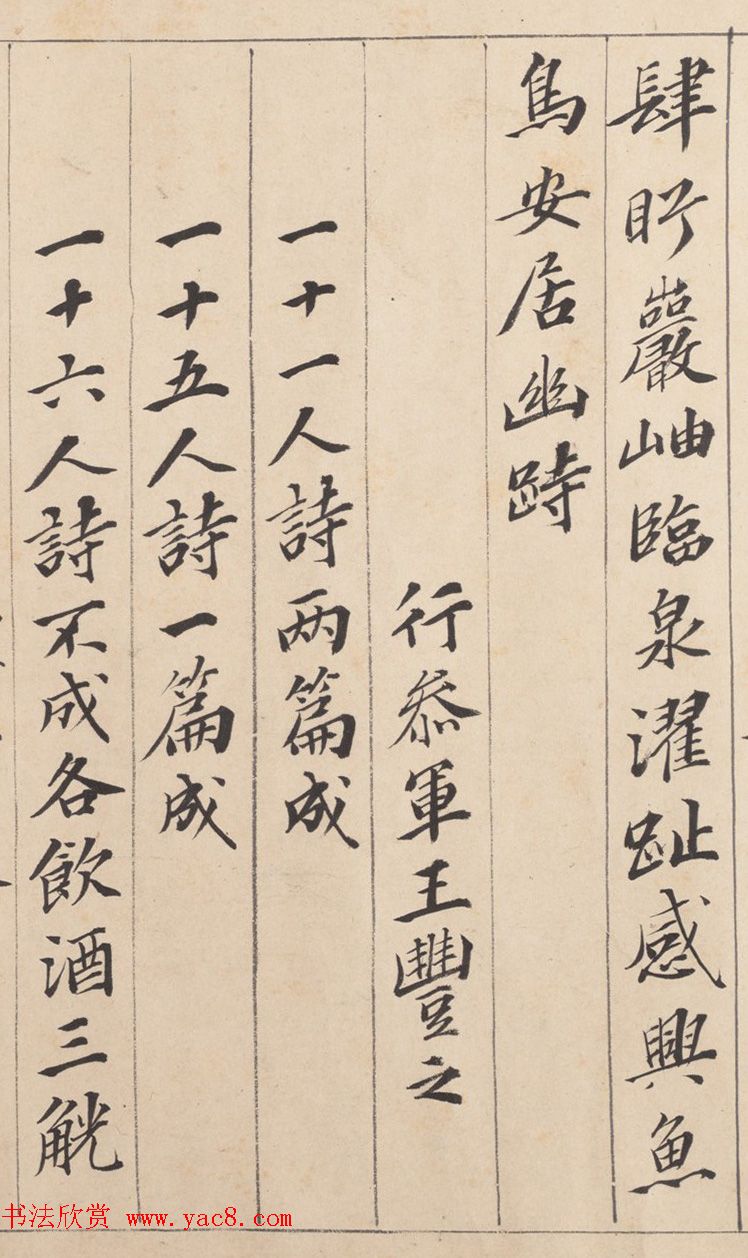 肆盻巖岫臨泉濯趾感興魚
鳥安居幽跱
行叅軍王豐之
一十一人詩两篇成
一十五人詩一篇成
一十六人詩不成各飲酒三觥
书法欣赏 www.yac8.com